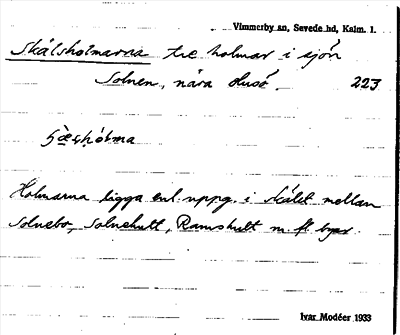 Vimmerby sn, Sevede hd, Kalm. l.
Skälsholmarna tre holmar i sjön
Solnen, nära
223
Holmarna ligga enl. uppg. i skälet mellan
Solnebo, Solnehult, Ramshult m. fl. byar.
Ivar Modéer 1933